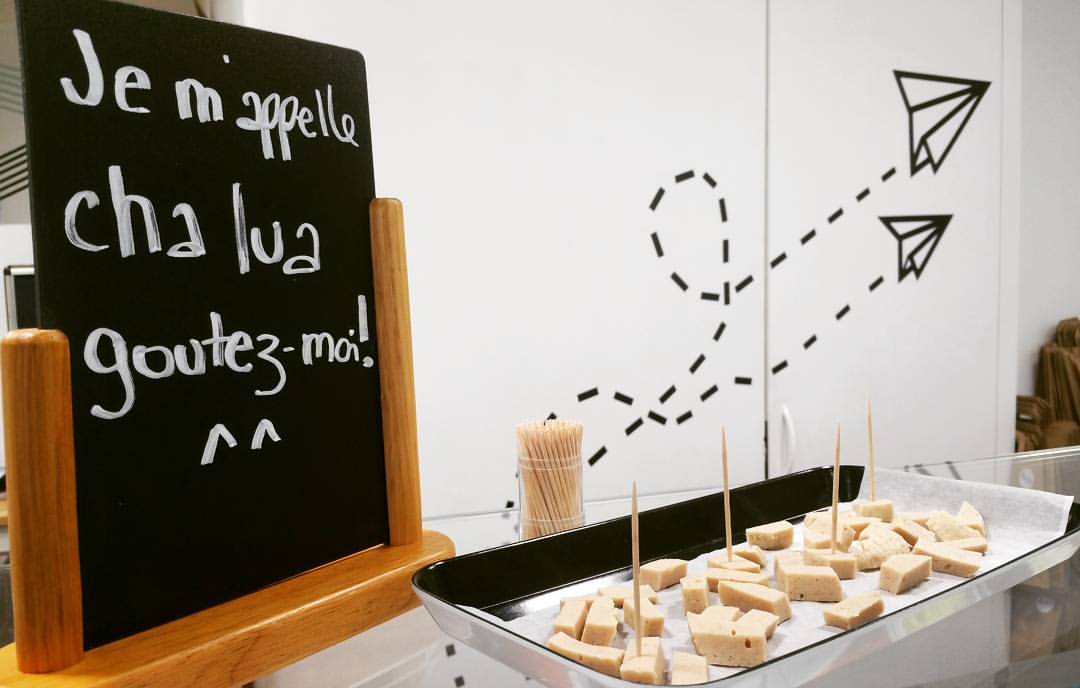 Je m'appelle
cha lua
goutez-moi!
^^